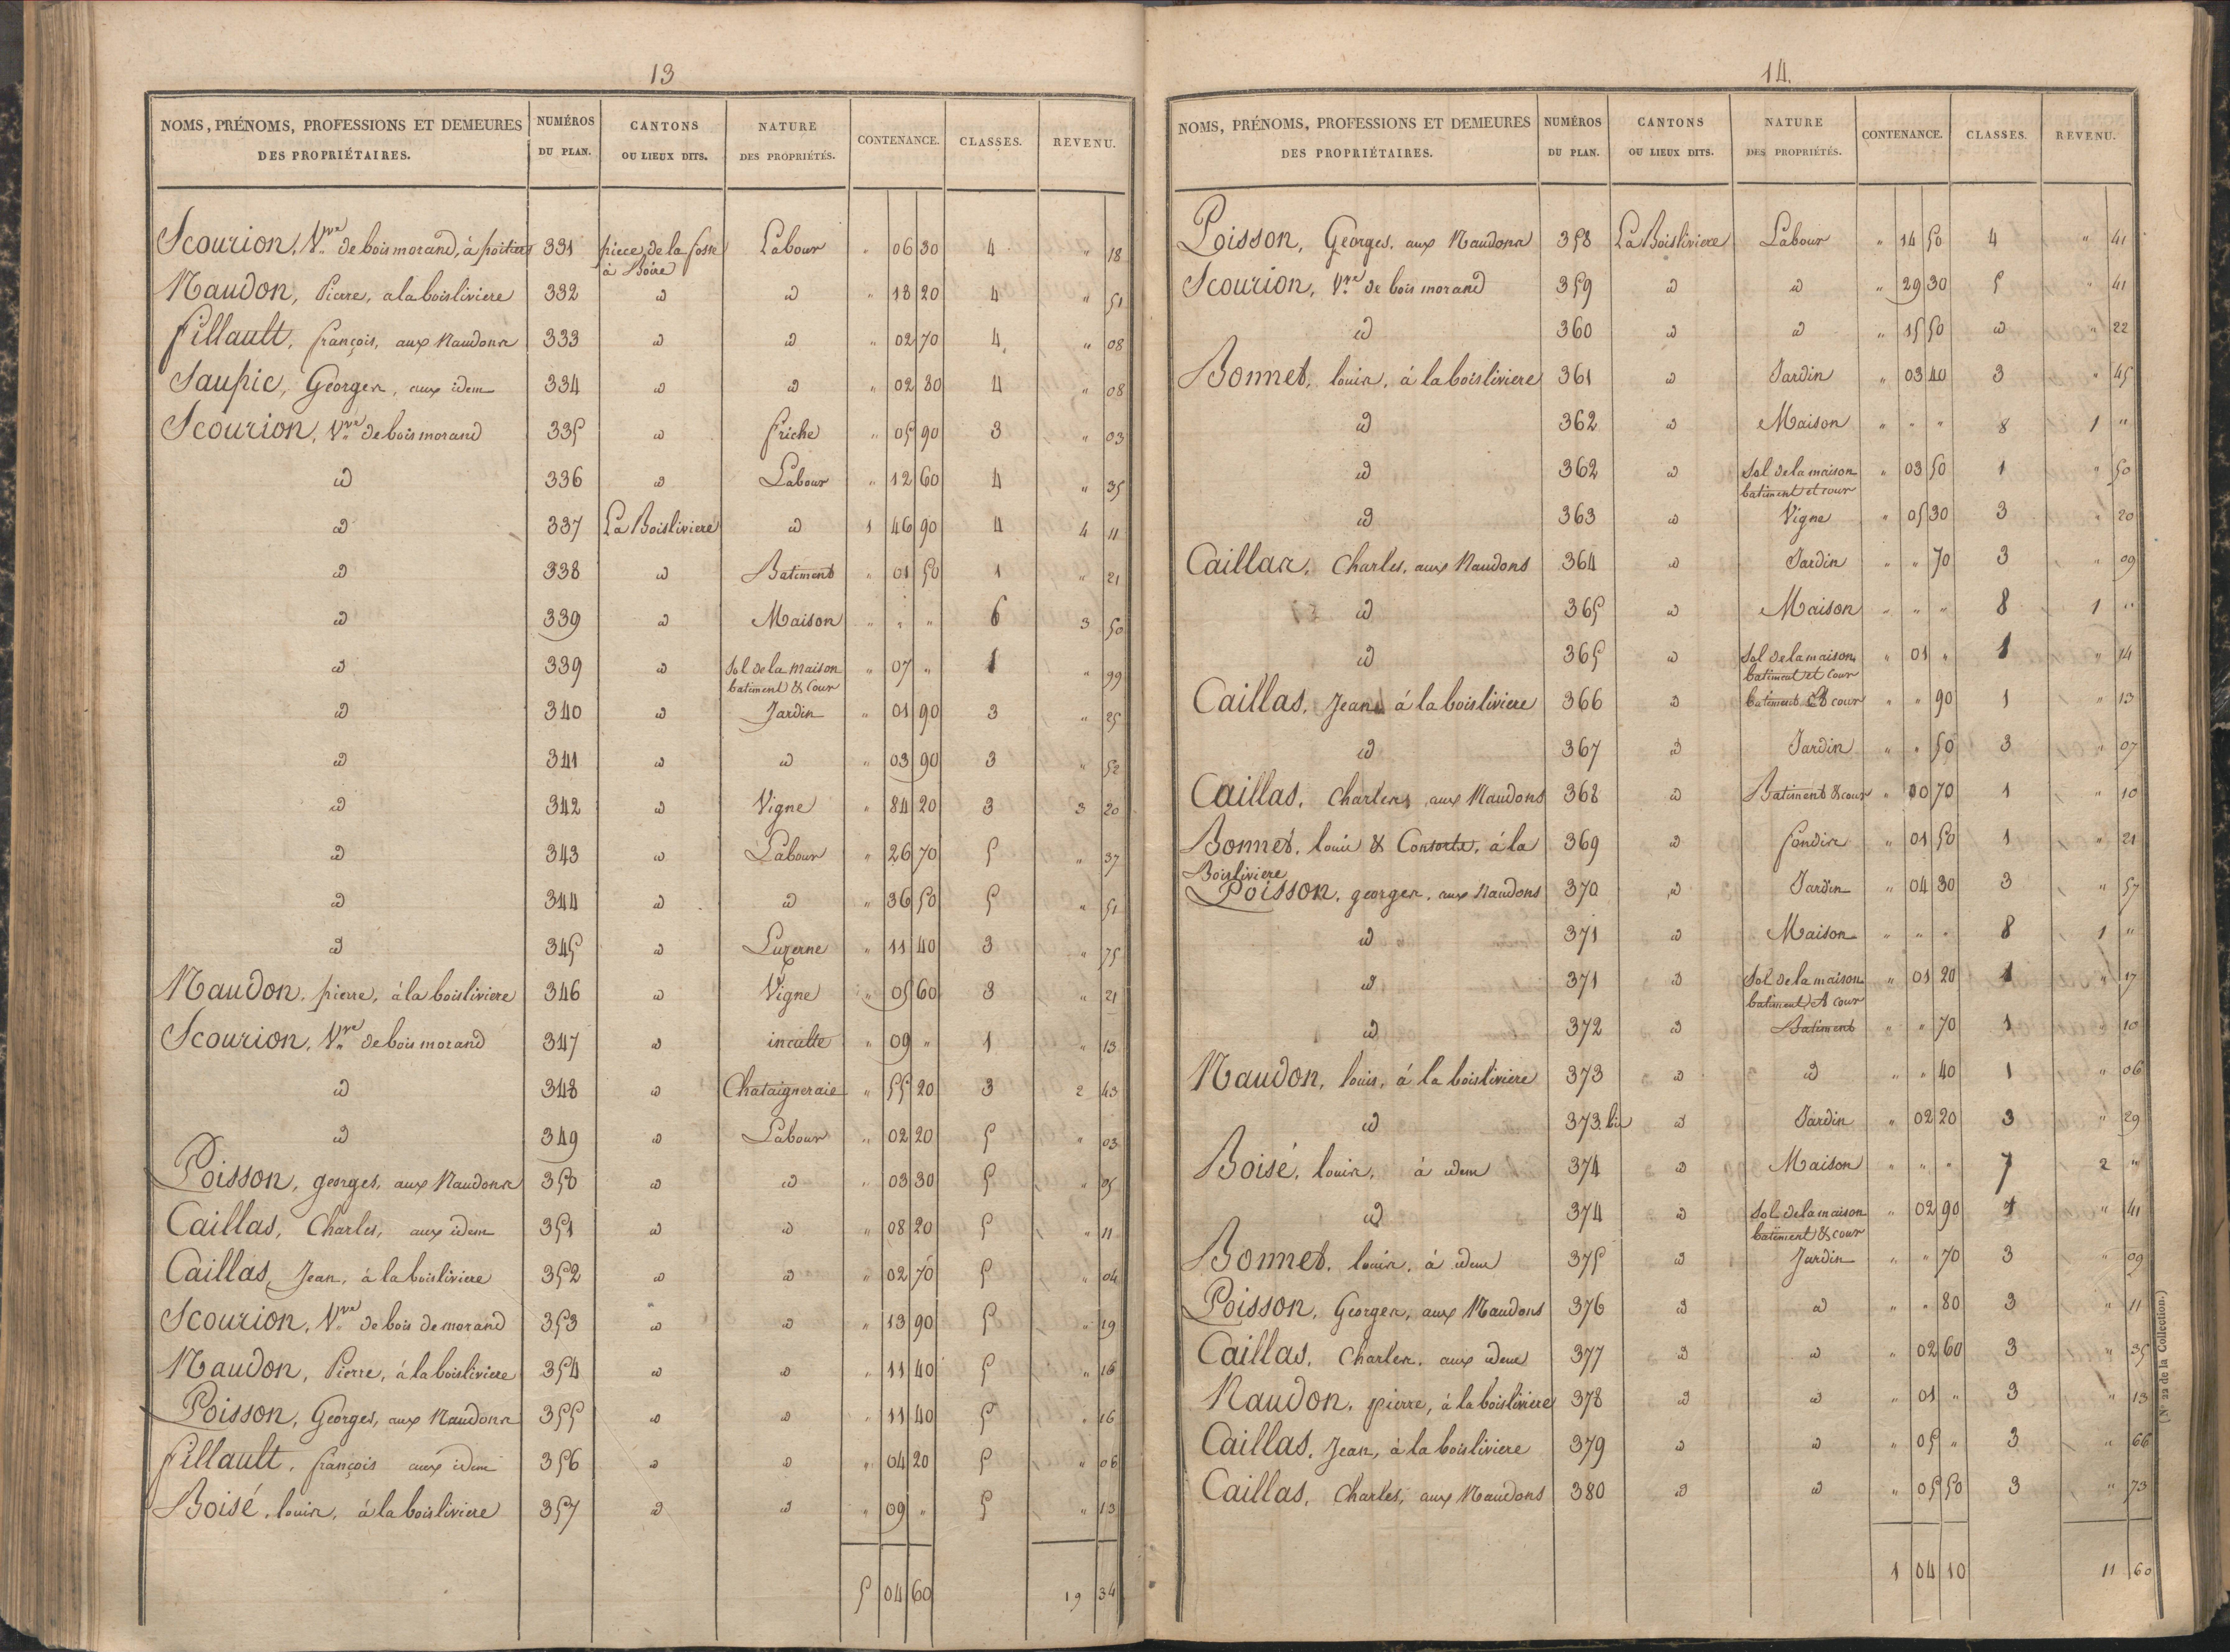 13
NOMS, PRÉNOMS, PROFESSIONS ET DEMEURES DES PROPRIÉTAIRES. | NUMÉROS DU PLAN. | CANTONS OU LIEUX DITS. | NATURE DES PROPRIÉTÉS. | CONTENANCE. | CLASSES. | REVENU.
Scourion, Vve de bois morand, à poitiers 331 piece de la fosse à Boire Labour " 06 30 4 " 18
Naudon, Pierre, a la boisliviere 332 id id " 18 20 4 " 51
fillault, françois, aux Naudons 333 id id " 02 70 4 " 08
Saupic, Georges, aux idem 334 id id " 02 80 4 " 08
Scourion, Vve de bois morand 335 id friche " 05 90 3 " 03
id 336 id Labour " 12 60 4 " 35
id 337 La Boisliviere id 1 46 90 4 4 11
id 338 id Batiment " 01 50 1 " 21
id 339 id Maison " " " 6 3 50
id 339 id Sol de la maison batiment & Cour " 07 " 1 " 99
id 340 id Jardin " 01 90 3 " 25
id 341 id id " 03 90 3 " 52
id 342 id Vigne " 84 20 3 3 20
id 343 id Labour " 26 70 5 " 37
id 344 id id " 36 50 5 " 51
id 345 id Luzerne " 11 40 3 " 75
Naudon, pierre, à la boisliviere 346 id Vigne " 05 60 3 " 21
Scourion, Vve de bois morand 347 id inculte " 09 " 1 " 13
id 348 id Chataigneraie " 55 20 3 2 43
id 349 id Labour " 02 20 5 " 03
Poisson, georges, aux Naudons 350 id id " 03 30 5 " 05
Caillas, Charles, aux idem 351 id id " 08 20 5 " 11
Caillas, Jean, à la boisliviere 352 id id " 02 70 5 " 04
Scourion, Vve de bois de morand 353 id id " 13 90 5 " 19
Naudon, Pierre, à la boisliviere 354 id id " 11 40 5 " 16
Poisson, Georges, aux Naudons 355 id id " 11 40 5 " 16
fillault, françois aux idem 356 id id " 04 20 5 " 06
Boisé, louis, à la boisliviere 357 id id " 09 " 5 " 13
5 04 60 19 34
14.
NOMS, PRÉNOMS, PROFESSIONS ET DEMEURES DES PROPRIÉTAIRES. | NUMÉROS DU PLAN. | CANTONS OU LIEUX DITS. | NATURE DES PROPRIÉTÉS. | CONTENANCE. | CLASSES. | REVENU.
Poisson, Georges, aux Naudons 358 La Boisliviere Labour " 14 50 4 " 41
Scourion, Vve de bois morand 359 id id " 29 30 5 " 41
id 360 id id " 15 50 id " 22
Bonnet, louis, à la boisliviere 361 id Jardin " 03 40 3 " 45
id 362 id Maison " " " 8 1 "
id 362 id Sol de la maison batiment et cour " 03 50 1 " 50
id 363 id Vigne " 05 30 3 " 20
Caillas, Charles, aux Naudons 364 id Jardin " " 70 3 " 09
id 365 id Maison " " " 8 1 "
id 365 id Sol de la maison batiment et Cour " 01 " 1 " 14
Caillas, Jean à la boisliviere 366 id batiment & cour " " 90 1 " 13
id 367 id Jardin " " 50 3 " 07
Caillas, Charles, aux Naudons 368 id Batiment & cour " 00 70 1 " 10
Bonnet, louis & Consorts, à la Boisliviere 369 id fondis " 01 50 1 " 21
Poisson, georges, aux Naudons 370 id Jardin " 04 30 3 " 57
id 371 id Maison " " " 8 1 "
id 371 id Sol de la maison batiment & cour " 01 20 1 " 17
id 372 id Batiment " " 70 1 " 10
Naudon, louis, à la boisliviere 373 id id " " 40 1 " 06
id 373 bis id Jardin " 02 20 3 " 29
Boisé, louis, à idem 374 id Maison " " " 7 2 "
id 374 id Sol de la maison batiment & cour " 02 90 1 " 41
Bonnet, louis, à idem 375 id Jardin " " 70 3 " 09
Poisson, Georges, aux Naudons 376 id id " " 80 3 " 11
Caillas, Charles, aux idem 377 id id " 02 60 3 " 35
Naudon, pierre, à la boisliviere 378 id id " 01 " 3 " 13
Caillas, Jean, à la boisliviere 379 id id " 05 " 3 " 66
Caillas, Charles, aux Naudons 380 id id " 05 50 3 " 73
1 04 10 11 60
(N° 22 de la Collection.)